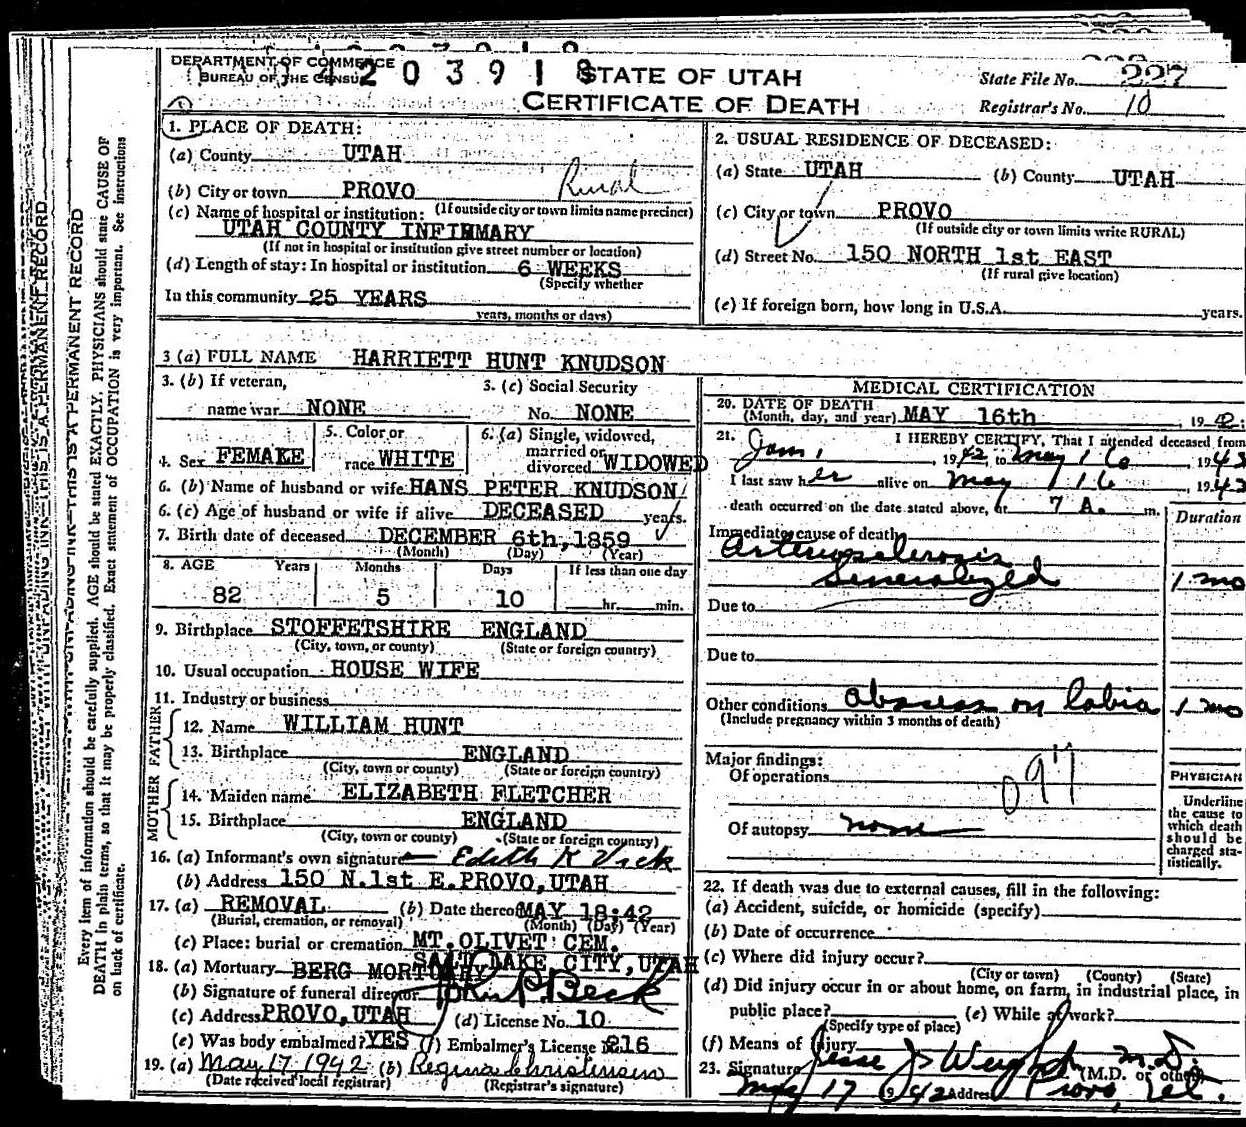 DEPARTMENT OF COMMERCE
BUREAU OF THE CENSUS
4203918
STATE OF UTAH
CERTIFICATE OF DEATH
State File No. 227
Registrar's No. 10
1. PLACE OF DEATH:
(a) County UTAH
(b) City or town PROVO Rural
(If outside city or town limits name precinct)
(c) Name of hospital or institution:
UTAH COUNTY INFIRMARY
(If not in hospital or institution give street number or location)
(d) Length of stay: In hospital or institution 6 WEEKS
(Specify whether
In this community 25 YEARS
years, months or days)
2. USUAL RESIDENCE OF DECEASED:
(a) State UTAH (b) County UTAH
(c) City or town PROVO
(If outside city or town limits write RURAL)
(d) Street No. 150 NORTH 1st EAST
(If rural give location)
(e) If foreign born, how long in U.S.A. years.
3 (a) FULL NAME HARRIETT HUNT KNUDSON
3. (b) If veteran,
name war NONE
3. (c) Social Security
No. NONE
4. Sex FEMAKE
5. Color or
race WHITE
6. (a) Single, widowed,
married or
divorced WIDOWED
6. (b) Name of husband or wife HANS PETER KNUDSON
6. (c) Age of husband or wife if alive DECEASED years.
7. Birth date of deceased DECEMBER 6th, 1859
(Month) (Day) (Year)
8. AGE Years Months Days If less than one day
82 5 10 hr. min.
9. Birthplace STOFFETSHIRE ENGLAND
(City, town, or county) (State or foreign country)
10. Usual occupation HOUSE WIFE
11. Industry or business
FATHER
12. Name WILLIAM HUNT
13. Birthplace ENGLAND
(City, town or county) (State or foreign country)
MOTHER
14. Maiden name ELIZABETH FLETCHER
15. Birthplace ENGLAND
(City, town or county) (State or foreign country)
16. (a) Informant's own signature Edith K Vick
(b) Address 150 N.1st E.PROVO,UTAH
17. (a) REMOVAL (b) Date thereof MAY 18:42
(Burial, cremation, or removal) (Month) (Day) (Year)
(c) Place: burial or cremation MT.OLIVET CEM.
SALT LAKE CITY,UTAH
18. (a) Mortuary BERG MORTUARY
(b) Signature of funeral director
(c) Address PROVO,UTAH (d) License No. 10
(e) Was body embalmed? YES (f) Embalmer's License 216
19. (a) May 17 1942 (b) Regina Christensen
(Date received local registrar) (Registrar's signature)
MEDICAL CERTIFICATION
20. DATE OF DEATH
(Month, day, and year) MAY 16th, 1942.
21. I HEREBY CERTIFY, That I attended deceased from
Jan, 1942, to May 16, 1942
I last saw her alive on May 16, 1942
death occurred on the date stated above, at 7 A. m.
Duration
Immediate cause of death
Arteriosclerosis
Generalized 1 mo
Due to
Due to
Other conditions abscess on labia 1 mo
(Include pregnancy within 3 months of death)
Major findings:
Of operations
097
Of autopsy none
PHYSICIAN
Underline
the cause to
which death
should be
charged sta-
tistically.
22. If death was due to external causes, fill in the following:
(a) Accident, suicide, or homicide (specify)
(b) Date of occurrence
(c) Where did injury occur?
(City or town) (County) (State)
(d) Did injury occur in or about home, on farm, in industrial place, in
public place? (e) While at work?
(Specify type of place)
(f) Means of injury
23. Signature M.D.
(M.D. or other)
May 17 1942 Address Provo, Ut.
Every item of information should be carefully supplied. AGE should be stated EXACTLY. PHYSICIANS should state CAUSE OF
DEATH in plain terms, so that it may be properly classified. Exact statement of OCCUPATION is very important. See instructions
on back of certificate.
THIS IS A PERMANENT RECORD